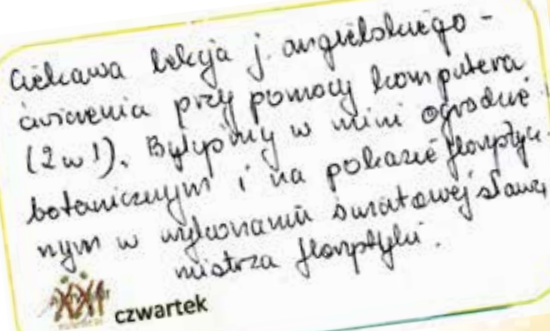 Ciekawa lekcja j. angielskiego -
ćwiczenia przy pomocy komputera
(2 w 1). Byłyśmy w mini ogrodzie
botanicznym i na pokazie florystycz-
nym w wykonaniu światowej sławy
mistrza florystyki.
XXI
czwartek